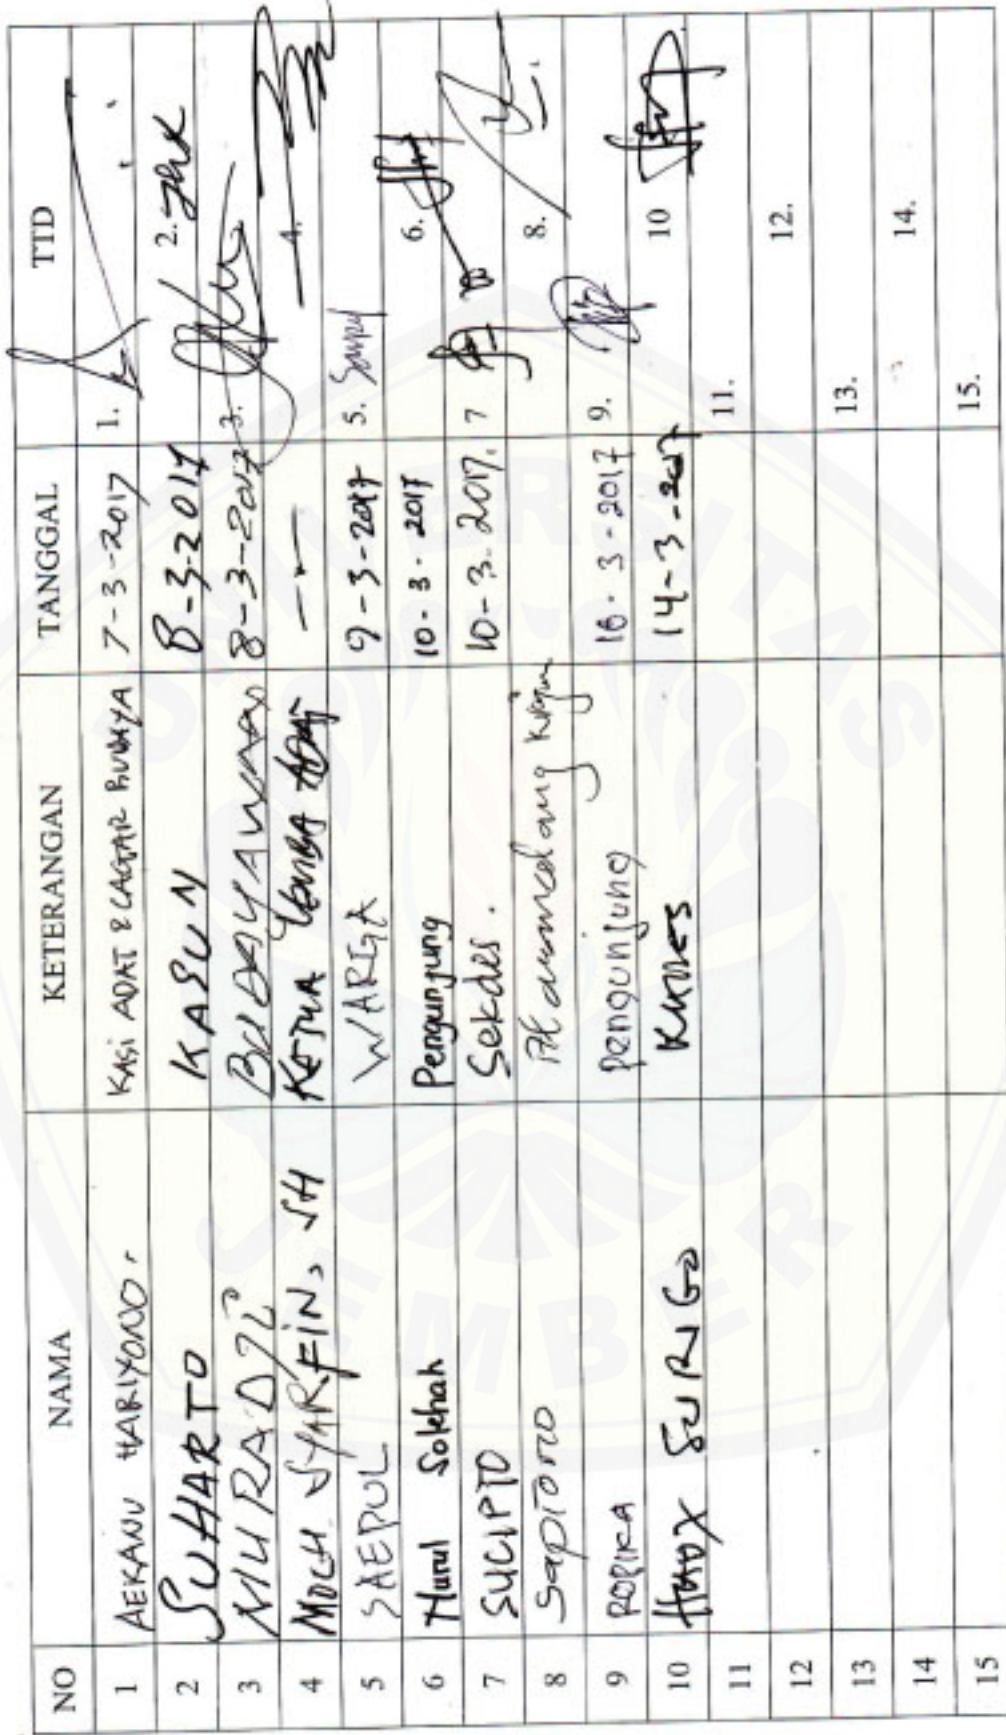 NO NAMA KETERANGAN TANGGAL TTD
1 AEKANU HARIYONO. KASI ADAT & CAGAR BUDAYA 7-3-2017 1.
2 SUHARTO KASUN 8-3-2017 2.
3 MURADJI BUDAYAWAN 8-3-2017 3.
4 MOCH SYARFIN, SH KETUA ADAT 4.
5 SAEPUL WARGA 9-3-2017 5. Saepul
6 Nurul Solehah Pengunjung 10-3-2017 6.
7 SUCIPTO Sekdes. 10-3-2017. 7
8 Saptono 8.
9 ROPIKA pengunjung 16-3-2017 9.
10 14-3-2017 10
11 11.
12 12.
13 13.
14 14.
15 15.
UNIVERSITAS
JEMBER